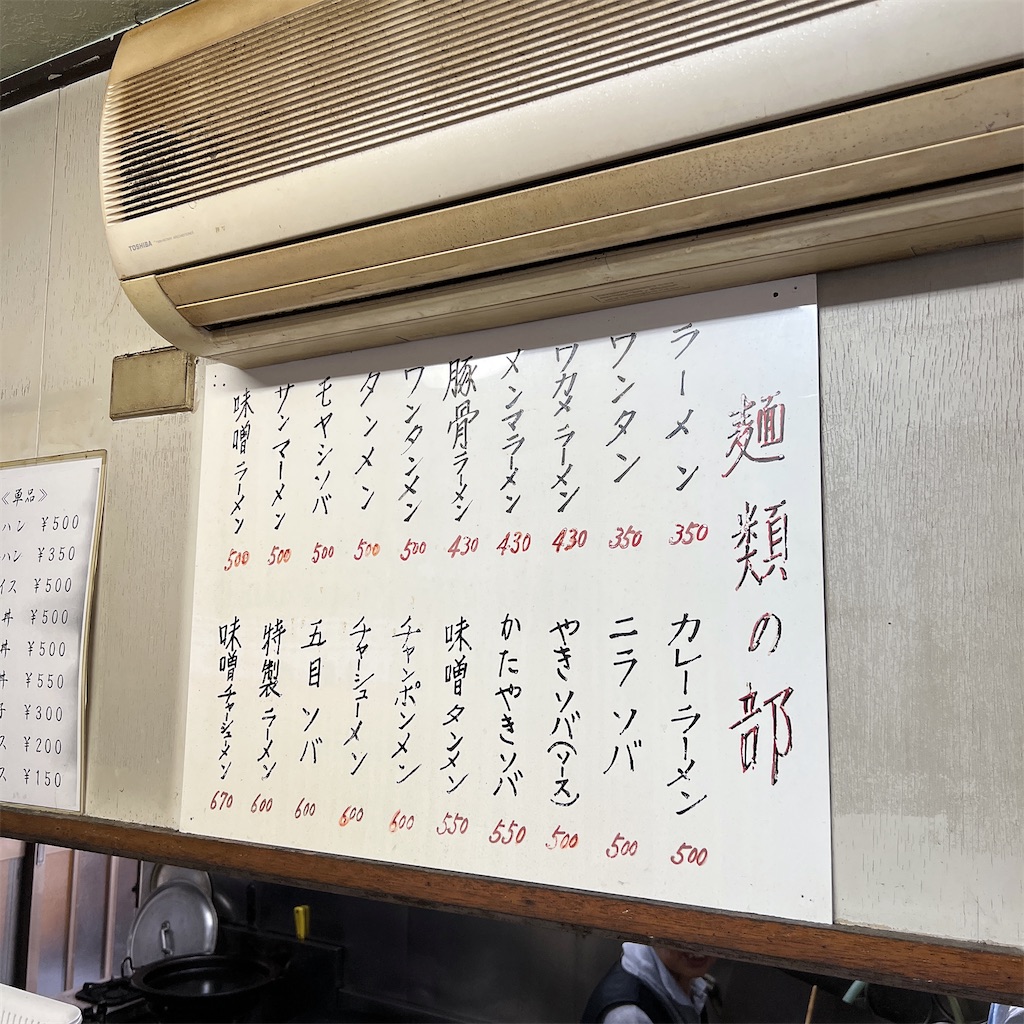 TOSHIBA
麺類の部
ラーメン 350
ワンタン 350
ワカメラーメン 430
メンマラーメン 430
豚骨ラーメン 430
ワンタンメン 500
タンメン 500
モヤシソバ 500
サンマーメン 500
味噌ラーメン 500
カレーラーメン 500
ニラソバ 500
やきソバ(ソース) 500
かたやきソバ 550
味噌タンメン 550
チャンポンメン 600
チャーシューメン 600
五目ソバ 600
特製ラーメン 600
味噌チャーシューメン 670
《単品》
ハン ¥500
ハン ¥350
イス ¥500
丼 ¥500
丼 ¥500
丼 ¥550
子 ¥300
ス ¥200
ス ¥150